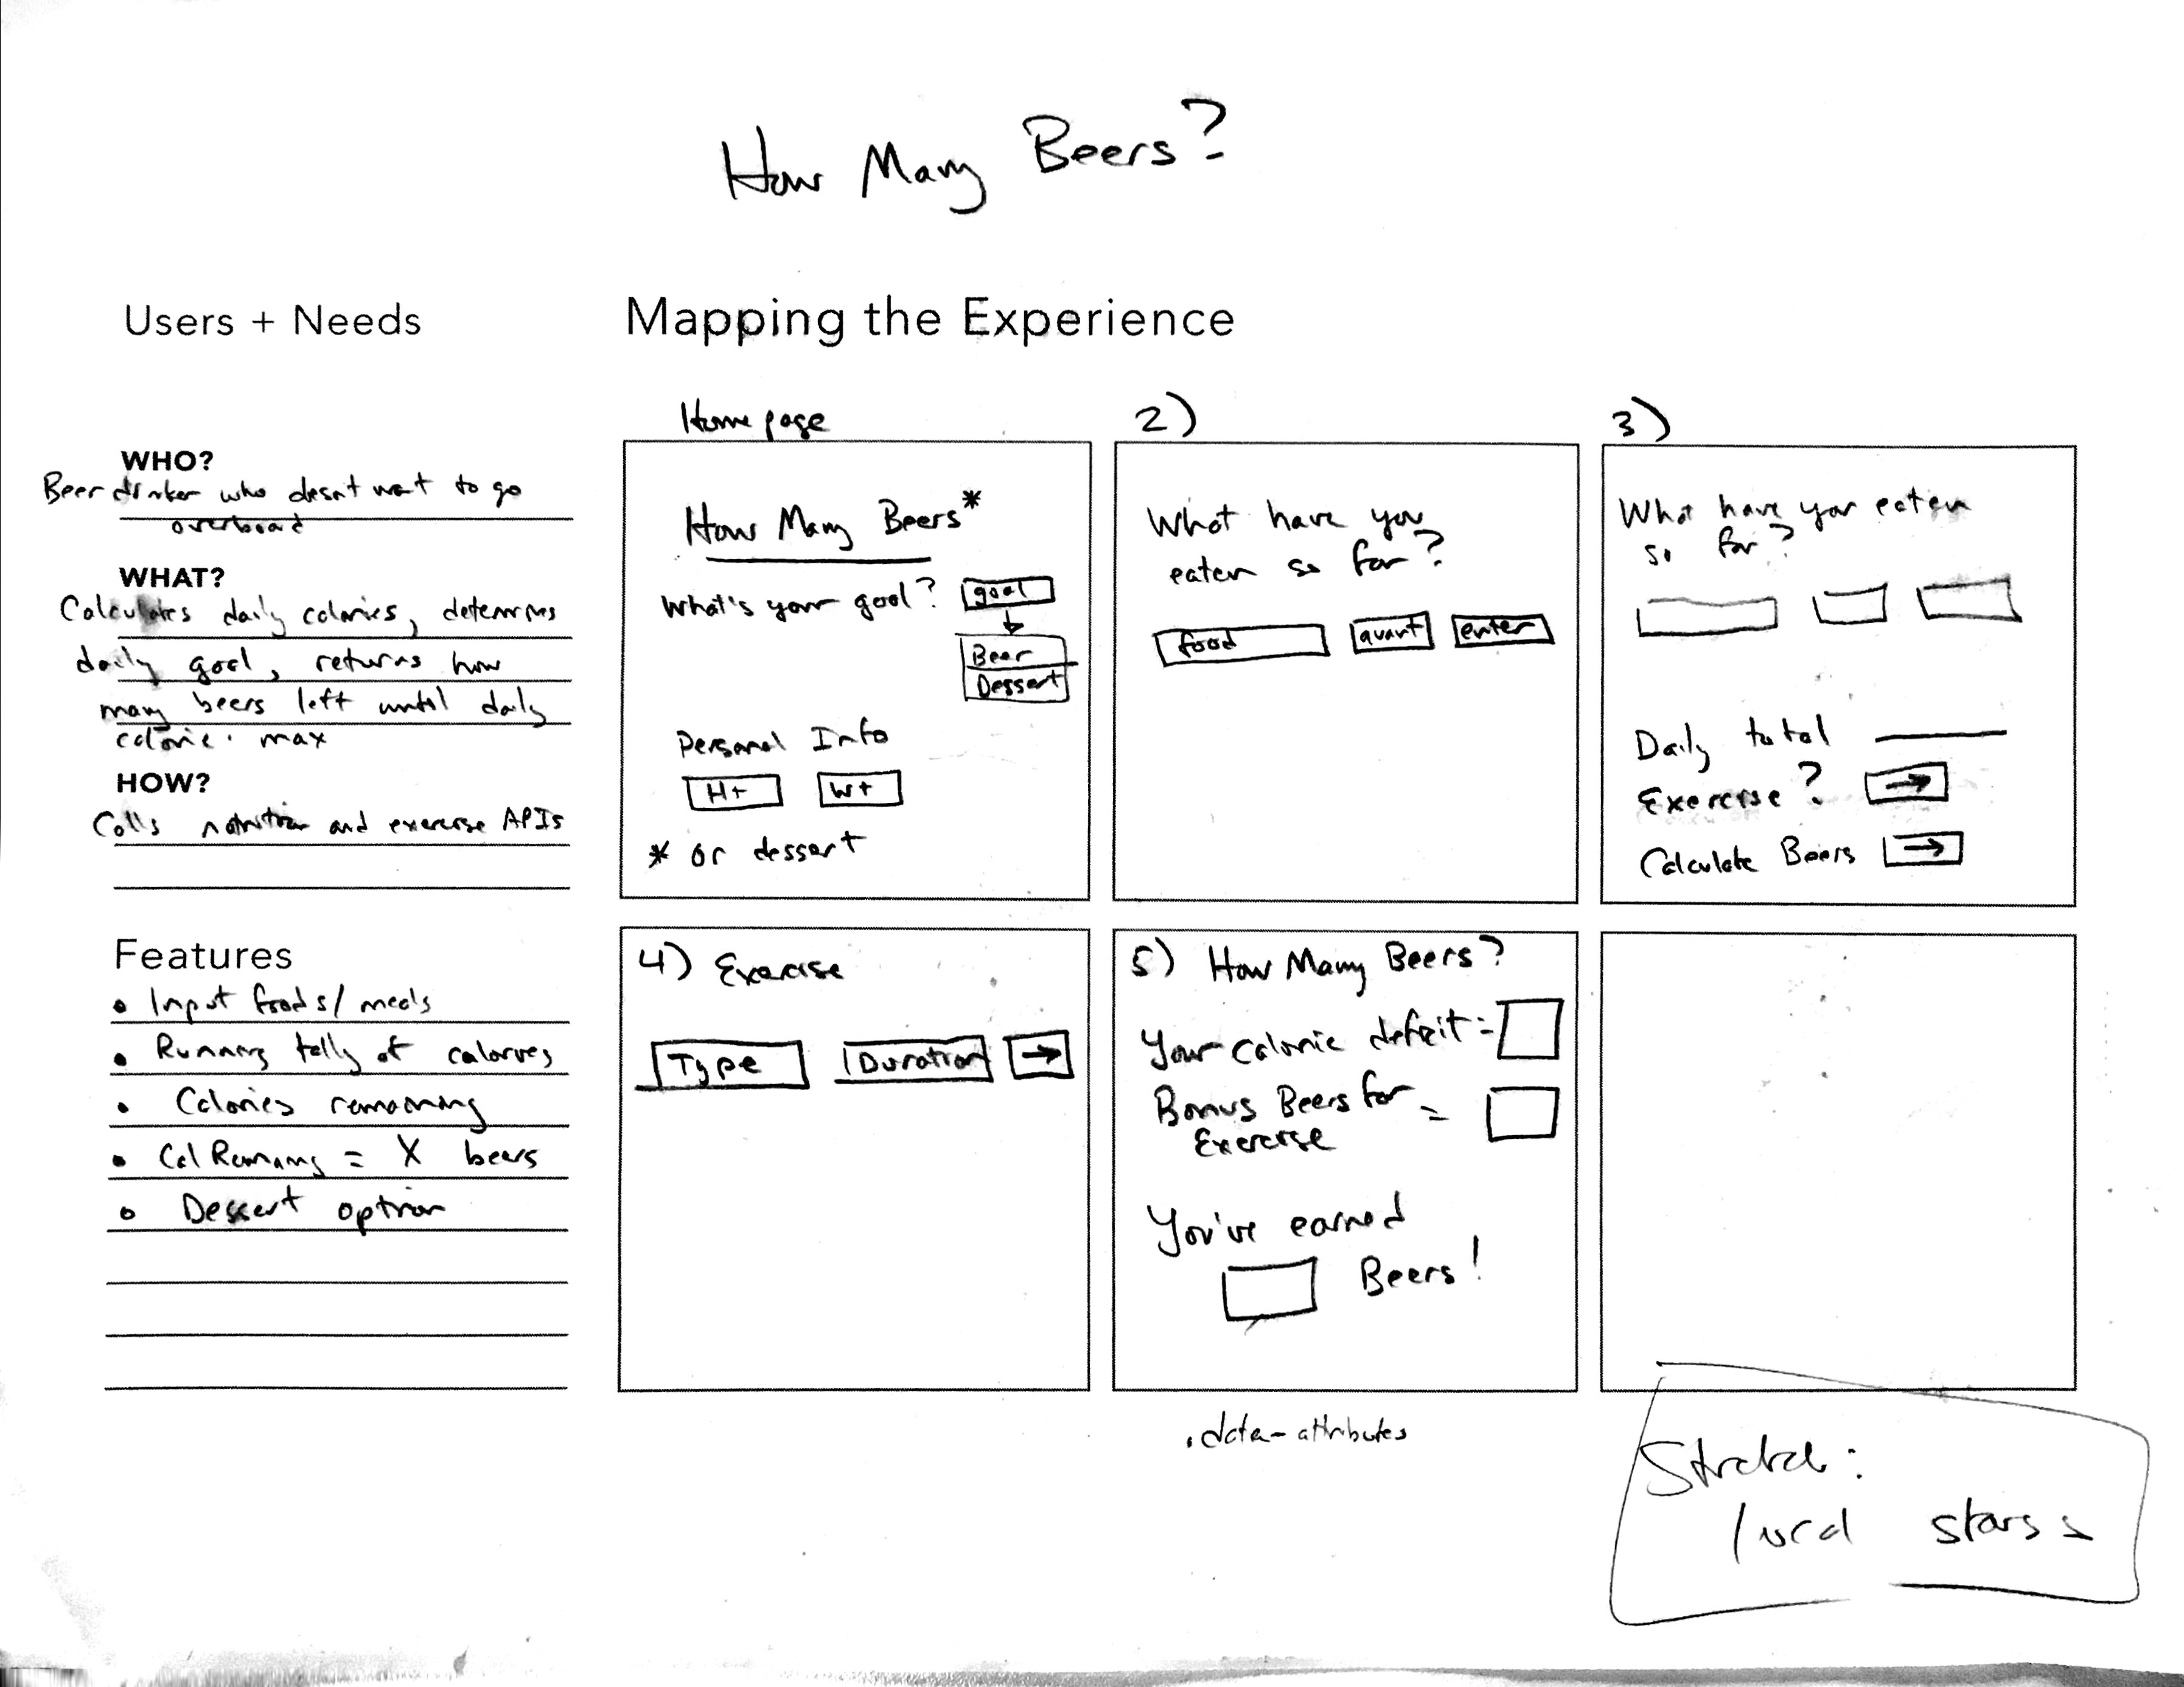 How Many Beers?
Users + Needs
Mapping the Experience
WHO?
Beer drinker who doesnt want to go
overboard
WHAT?
Calculates daily calories, determines
daily goal, returns how
many beers left until daily
calorie max
HOW?
Calls nutrition and exercise APIs
Features
• Input foods/meals
• Running tally of calories
• Calories remaining
• Cal Remaining = X beers
• Dessert option
Home page
How Many Beers*
What's your goal? goal
Beer
Dessert
Personal Info
Ht Wt
* or dessert
2)
What have you
eaten so far?
food quant enter
3)
What have you eaten
so far?
Daily total
Exercise? →
Calculate Beers →
4) Exercise
Type Duration →
5) How Many Beers?
Your caloric deficit =
Bonus Beers for =
Exercise
You've earned
Beers!
. data-attributes
Stretch: